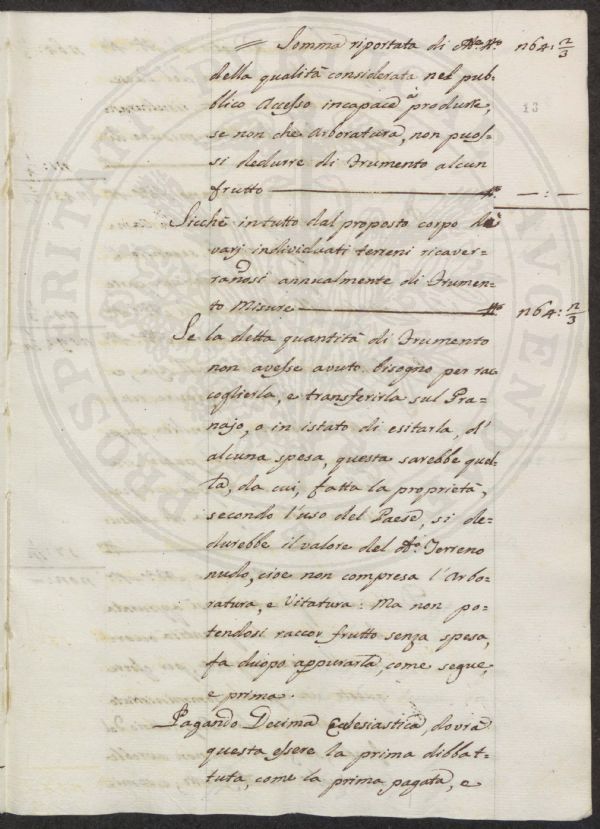 = Somma riportata di Mre No n64: n/3
della qualità considerata nel pub=
blico Accesso incapace à produrre,
13
se non che Arboratura, non puol=
si dedurre di Frumento alcun
frutto — No — : —
Sicchè in tutto dal proposto corpo de
varj individuati terreni ricaver=
ranosi annualmente di Frumen=
to Misure — No n64: n/3
Se la detta quantità di Frumento
non avesse avuto bisogno per rac
coglierla, e transferirla sul Gra=
najo, o in istato di esitarla, d'
alcuna spesa, questa sarebbe quel=
la, da cui, fatta la proprietà,
secondo l'uso del Paese, si de=
durebbe il valore del do. Terreno
nudo, cioe non compresa l'Arbo=
ratura, e Vitatura: Ma non po=
tendosi raccor frutto senza spesa,
fa duopo appurarla, come segue,
e prima.
Pagando Decima Eclesiastica, dovrà
questa essere la prima dibbat=
tuta, come la prima pagata, e
PROSPERITATI PUBLICAE AUGENDAE